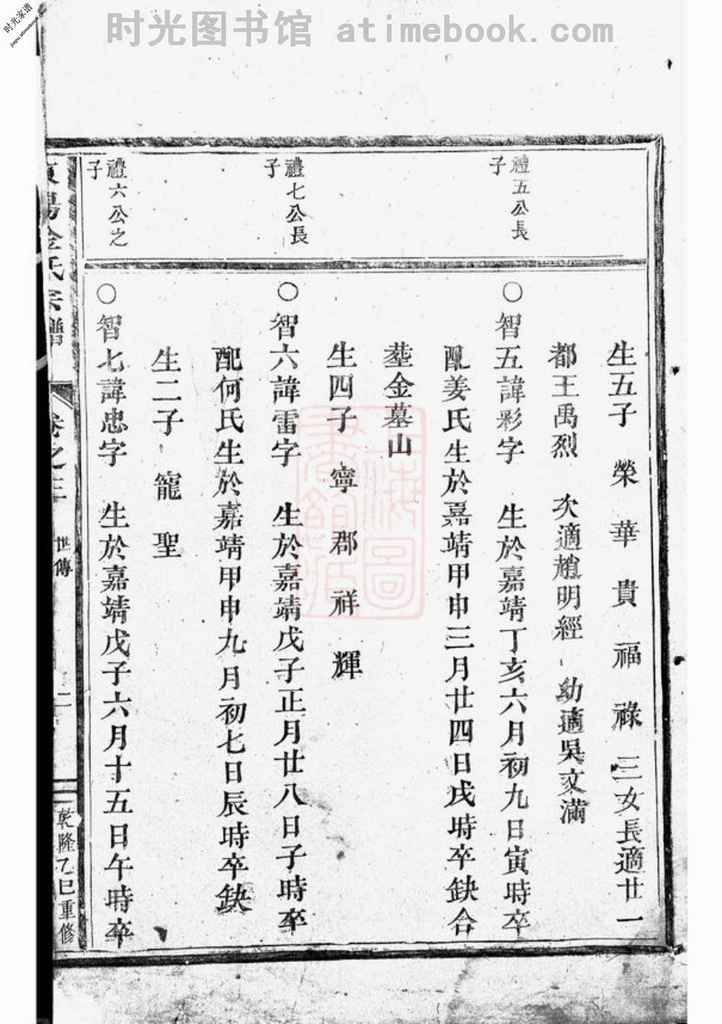 时光图书馆 atimebook.com
时光家谱
禮五公長
子
生五子 榮 華 貴 福 祿 三女長適廿一
都王禹烈 次適趙明經 幼適吳文滿
○智五諱彩字 生於嘉靖丁亥六月初九日寅時卒
配姜氏生於嘉靖甲申三月廿四日戌時卒缺合
塟金墓山
生四子 寧 郡 祥 輝
禮七公長
子
○智六諱雷字 生於嘉靖戊子正月廿八日子時卒
配何氏生於嘉靖甲申九月初七日辰時卒缺
生二子 寵 聖
禮六公之
子
○智七諱忠字 生於嘉靖戊子六月十五日午時卒
東陽金氏宗譜
卷之三
世傳
乾隆乙巳重修